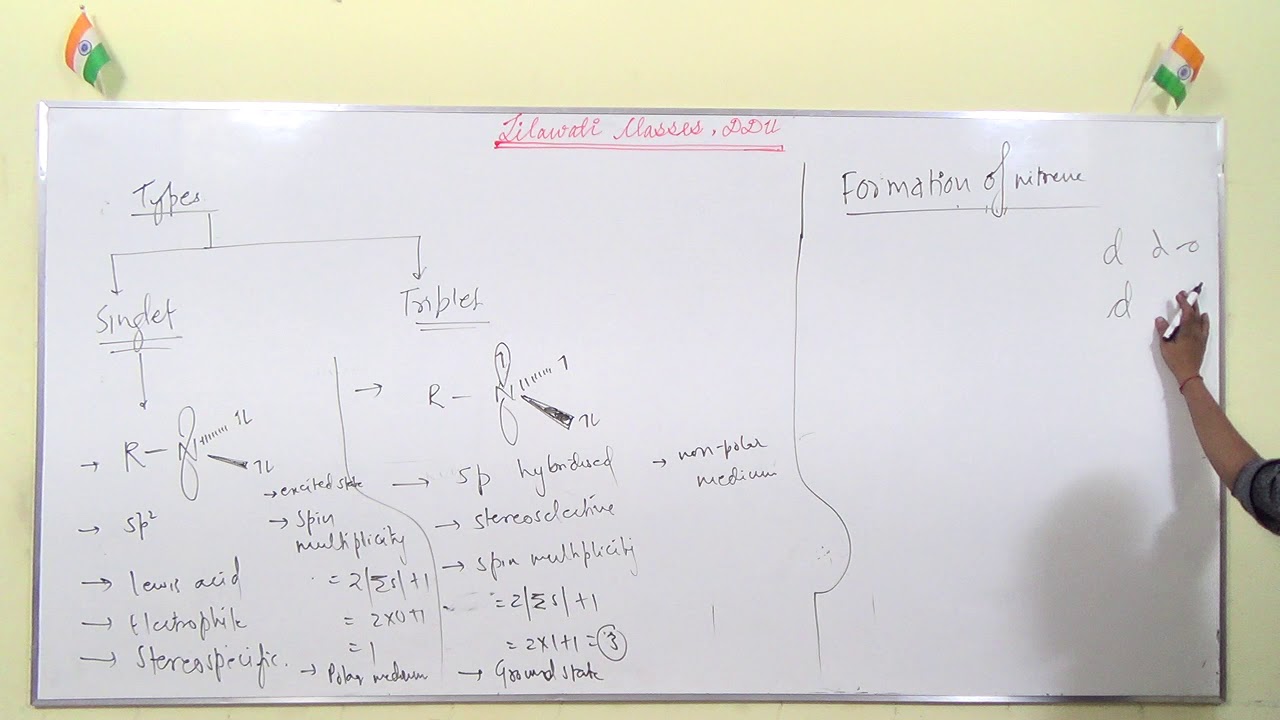 Lilawati Classes, DDU
Types
Singlet
R — N 1L
1L
→ sp²
→ Lewis acid
→ Electrophile
→ Stereospecific.
→ excited state
→ Spin
multiplicity
= 2|Σs|+1
= 2×0+1
= 1
→ Polar medium
Triplet
→ R — N 1
1
1L
→ sp hybridised
→ stereoselective
→ spin multiplicity
= 2|Σs|+1
= 2×1+1 = 3
→ Ground state
→ non-polar
medium
Formation of nitrene
d d-o
d